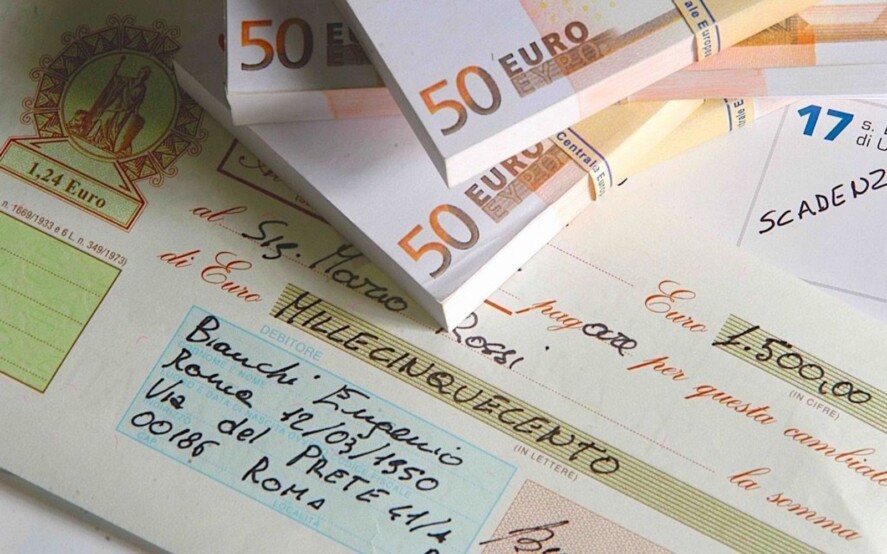 50 EURO
50 EURO
ΕΥΡΩ
50 EURO
ΕΥΡΩ
Centrale
17 s.
di
SCADENZ
1,24 Euro
n. 1669/1933 e 6 L. n. 349/1973)
al Sig. Mario Rossi pagare Euro 1.500,00
(IN CIFRE)
per questa cambiale
di Euro MILLECINQUECENTO la somma
(IN LETTERE)
DEBITORE
Bianchi Eugenio
Roma 12/03/1950
Via del PRETE 41/
00186 ROMA
CAP
LOCALITÀ